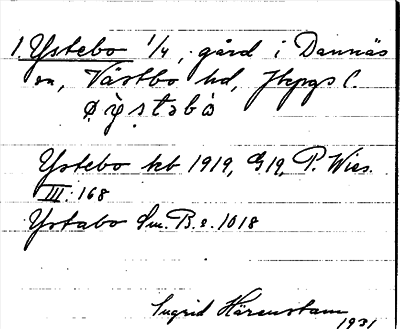 1 Ystebo 1/4, gård i Dannäs
sn, Västbo hd, Jkpgs l.
Ystebo kb 1919, G19, P. Wies.
III: 168
Ystabo Sm. B. s. 1018
Ingrid Härenstam
1931